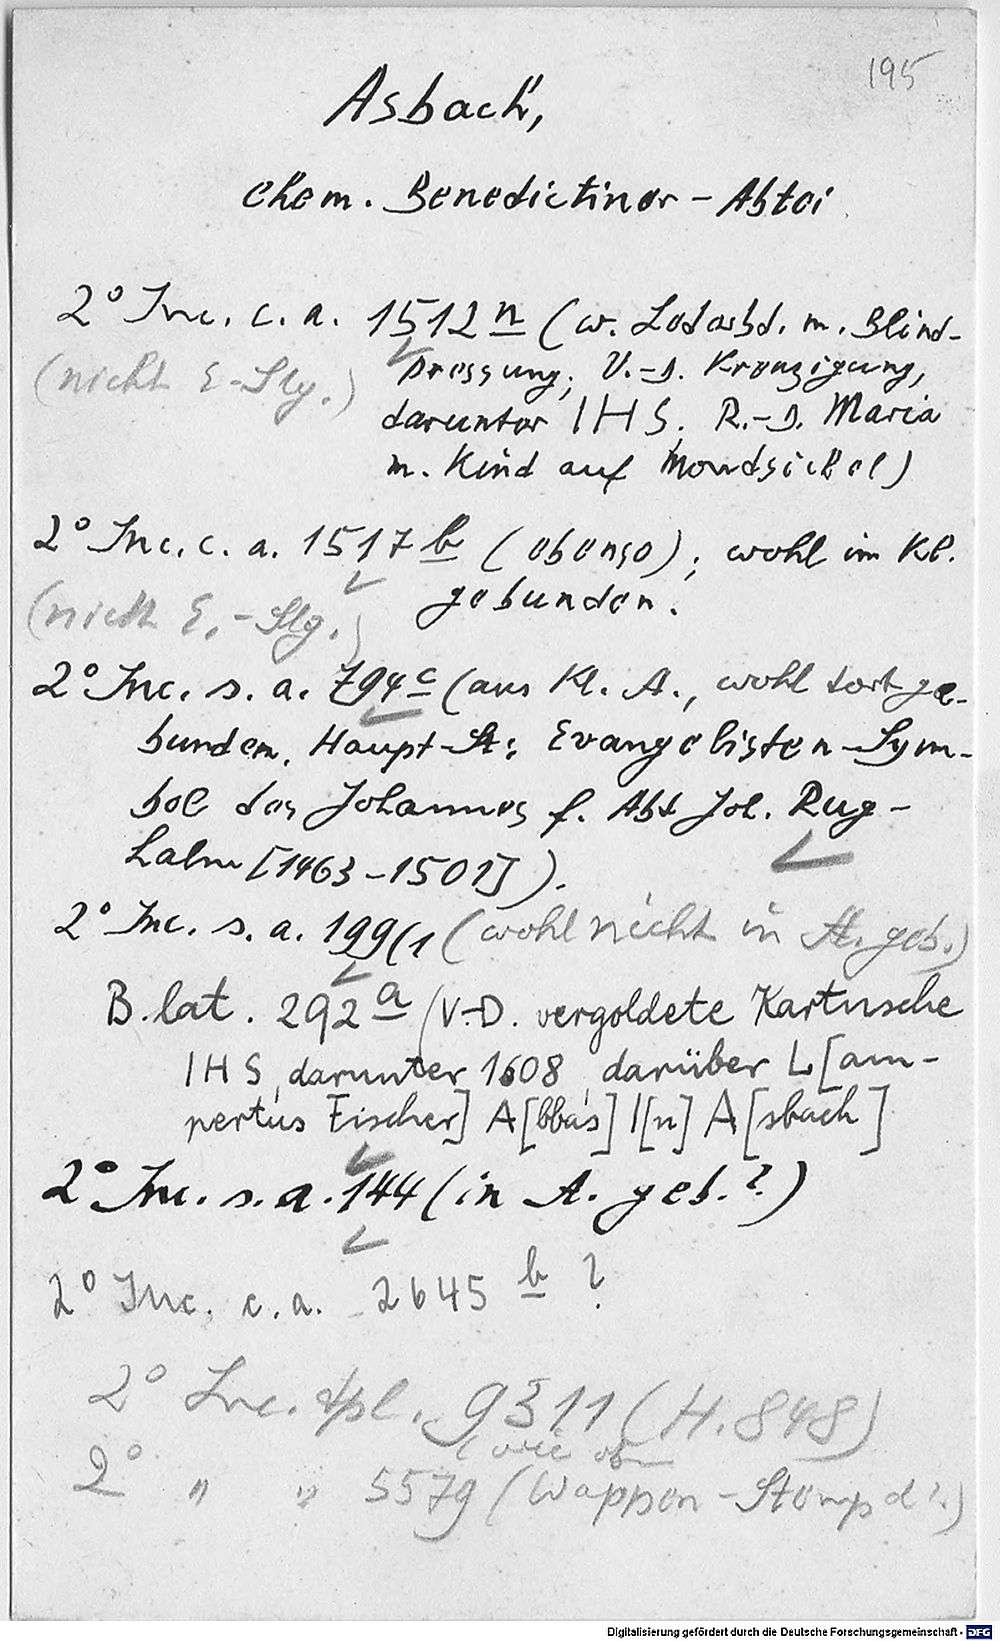 195
Asbach,
ehem. Benedictiner-Abtei
2° Inc. c. a. 1512 n (w. Lederbd. m. Blind-
(nicht E-Slg.) pressung; V.-D. Kreuzigung,
darunter IHS, R.-D. Maria
m. Kind auf Mondsichel)
2° Inc. c. a. 1517 b (ebenso); wohl im Kl.
(nicht E.-Slg.) gebunden.
2° Inc. s. a. 794 c (aus Kl. A., wohl dort ge-
bunden, Haupt-St: Evangelisten-Sym-
bol des Johannes f. Abt Joh. Rug-
halm [1463-1501]).
2° Inc. s. a. 199(1 (wohl nicht in A. geb.)
B. lat. 292 a (V.-D. vergoldete Kartusche
IHS, darunter 1608, darüber L[am-
pertus Fischer] A[bbas] I[n] A[sbach]
2° Inc. s. a. 144 (in A. geb.?)
2° Inc. c. a. 2645 b ?
2° Inc. dpl. 9311 (H. 848)
(wie oben
2° " " 557g (Wappen-Stempel?)
Digitalisierung gefördert durch die Deutsche Forschungsgemeinschaft - DFG